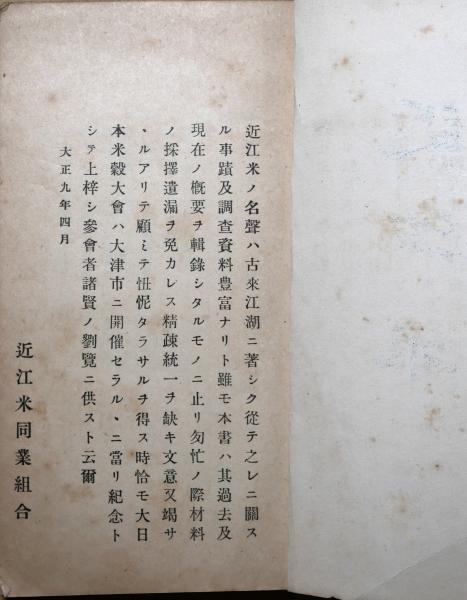 近江米ノ名聲ハ古來江湖ニ著シク從テ之レニ關ス
ル事蹟及調查資料豊富ナリト雖モ本書ハ其過去及
現在ノ概要ヲ輯錄シタルモノニ止リ匆忙ノ際材料
ノ採擇遺漏ヲ免カレス精疎統一ヲ缺キ文意又竭サ
ヽルアリテ顧ミテ忸怩タラサルヲ得ス時恰モ大日
本米穀大會ハ大津市ニ開催セラルヽニ當リ紀念ト
シテ上梓シ參會者諸賢ノ劉覽ニ供スト云爾
大正九年四月
近江米同業組合